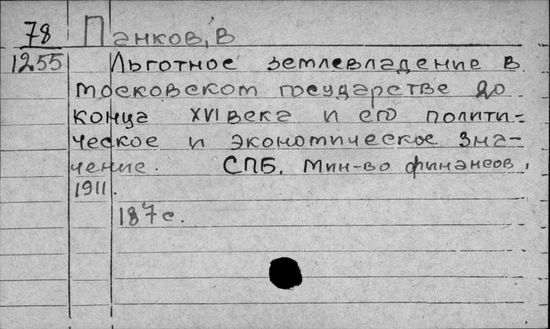 78 Панков, В
1255 Льготное землевладение в
московском государстве до
конца XVI века и его полити-
ческое и экономическое зна-
чение. СПБ, Мин-во финансов,
1911.
187 с.